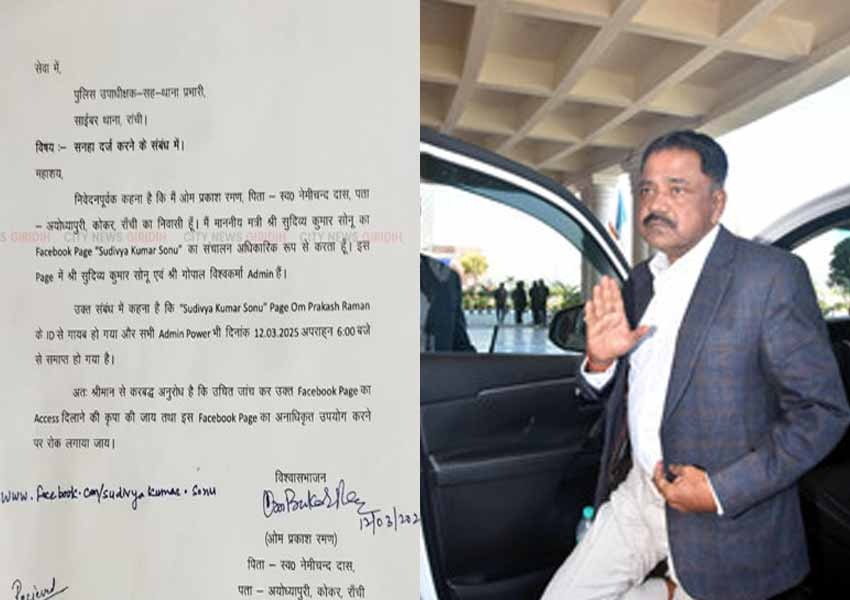 सेवा में,
पुलिस उपाधीक्षक–सह–थाना प्रभारी,
साईबर थाना, रांची।
विषय :– सनहा दर्ज करने के संबंध में।
महाशय,
निवेदनपूर्वक कहना है कि मैं ओम प्रकाश रमण, पिता – स्व० नेमीचन्द दास, पता
– अयोध्यापुरी, कोकर, राँची का निवासी हूँ। मैं माननीय मंत्री श्री सुदिव्य कुमार सोनू का
GIRIDIH CITY NEWS GIRIDIH CITY NEWS GIRIDIH CITY NEWS GIRIDIH
Facebook Page "Sudivya Kumar Sonu" का संचालन अधिकारिक रूप से करता हूँ। इस
Page में श्री सुदिव्य कुमार सोनू एवं श्री गोपाल विश्वकर्मा Admin हैं।
उक्त संबंध में कहना है कि "Sudivya Kumar Sonu" Page Om Prakash Raman
के ID से गायब हो गया और सभी Admin Power भी दिनांक 12.03.2025 अपराहन 6:00 बजे
से समाप्त हो गया है।
अतः श्रीमान से करबद्ध अनुरोध है कि उचित जांच कर उक्त Facebook Page का
Access दिलाने की कृपा की जाय तथा इस Facebook Page का अनाधिकृत उपयोग करने
पर रोक लगाया जाय।
विश्वासभाजन
www.facebook.com/sudivyakumar.sonu
12/03/202
(ओम प्रकाश रमण)
पिता – स्व० नेमीचन्द दास,
पता – अयोध्यापुरी, कोकर, राँची